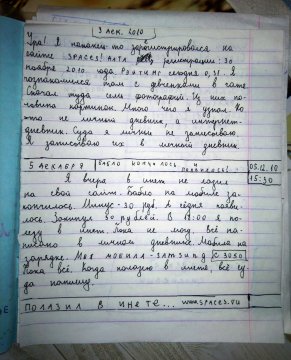 3 дек. 2010
Ура! Я наконец-то зарегистрировался на
сайте SPACES! Дата регистрации: 30
ноября 2010 года. Рэйтинг сегодня 0,31. Я
познакомился там с девченками в чате
скачал туда семь фотографий. Из них по-
ловина картинок. Много чего я узнал. Но
это не личный дневник, а интернет-
дневник. Сюда я личные не записываю.
Я записываю их в личный дневник.
5 декабря
Бабло кончилось и
появилось!
05.12.10
15:30
Я вчера в инет не лазил
на свой сайт. Бабло на мобиле за-
кончилось. Минус - 30 руб. А сегодня появи-
лось. Закинул 50 рублей. В 18:00 я по-
лезу в инет. Пока не мод. Всё на-
писано в личном дневнике. Мобила на
зарядке. Моя мобила - SAMSUNG K 3050
Пока всё. Когда полазию в инете, всё су-
да напишу.
Полазил в инете... www.spaces.ru